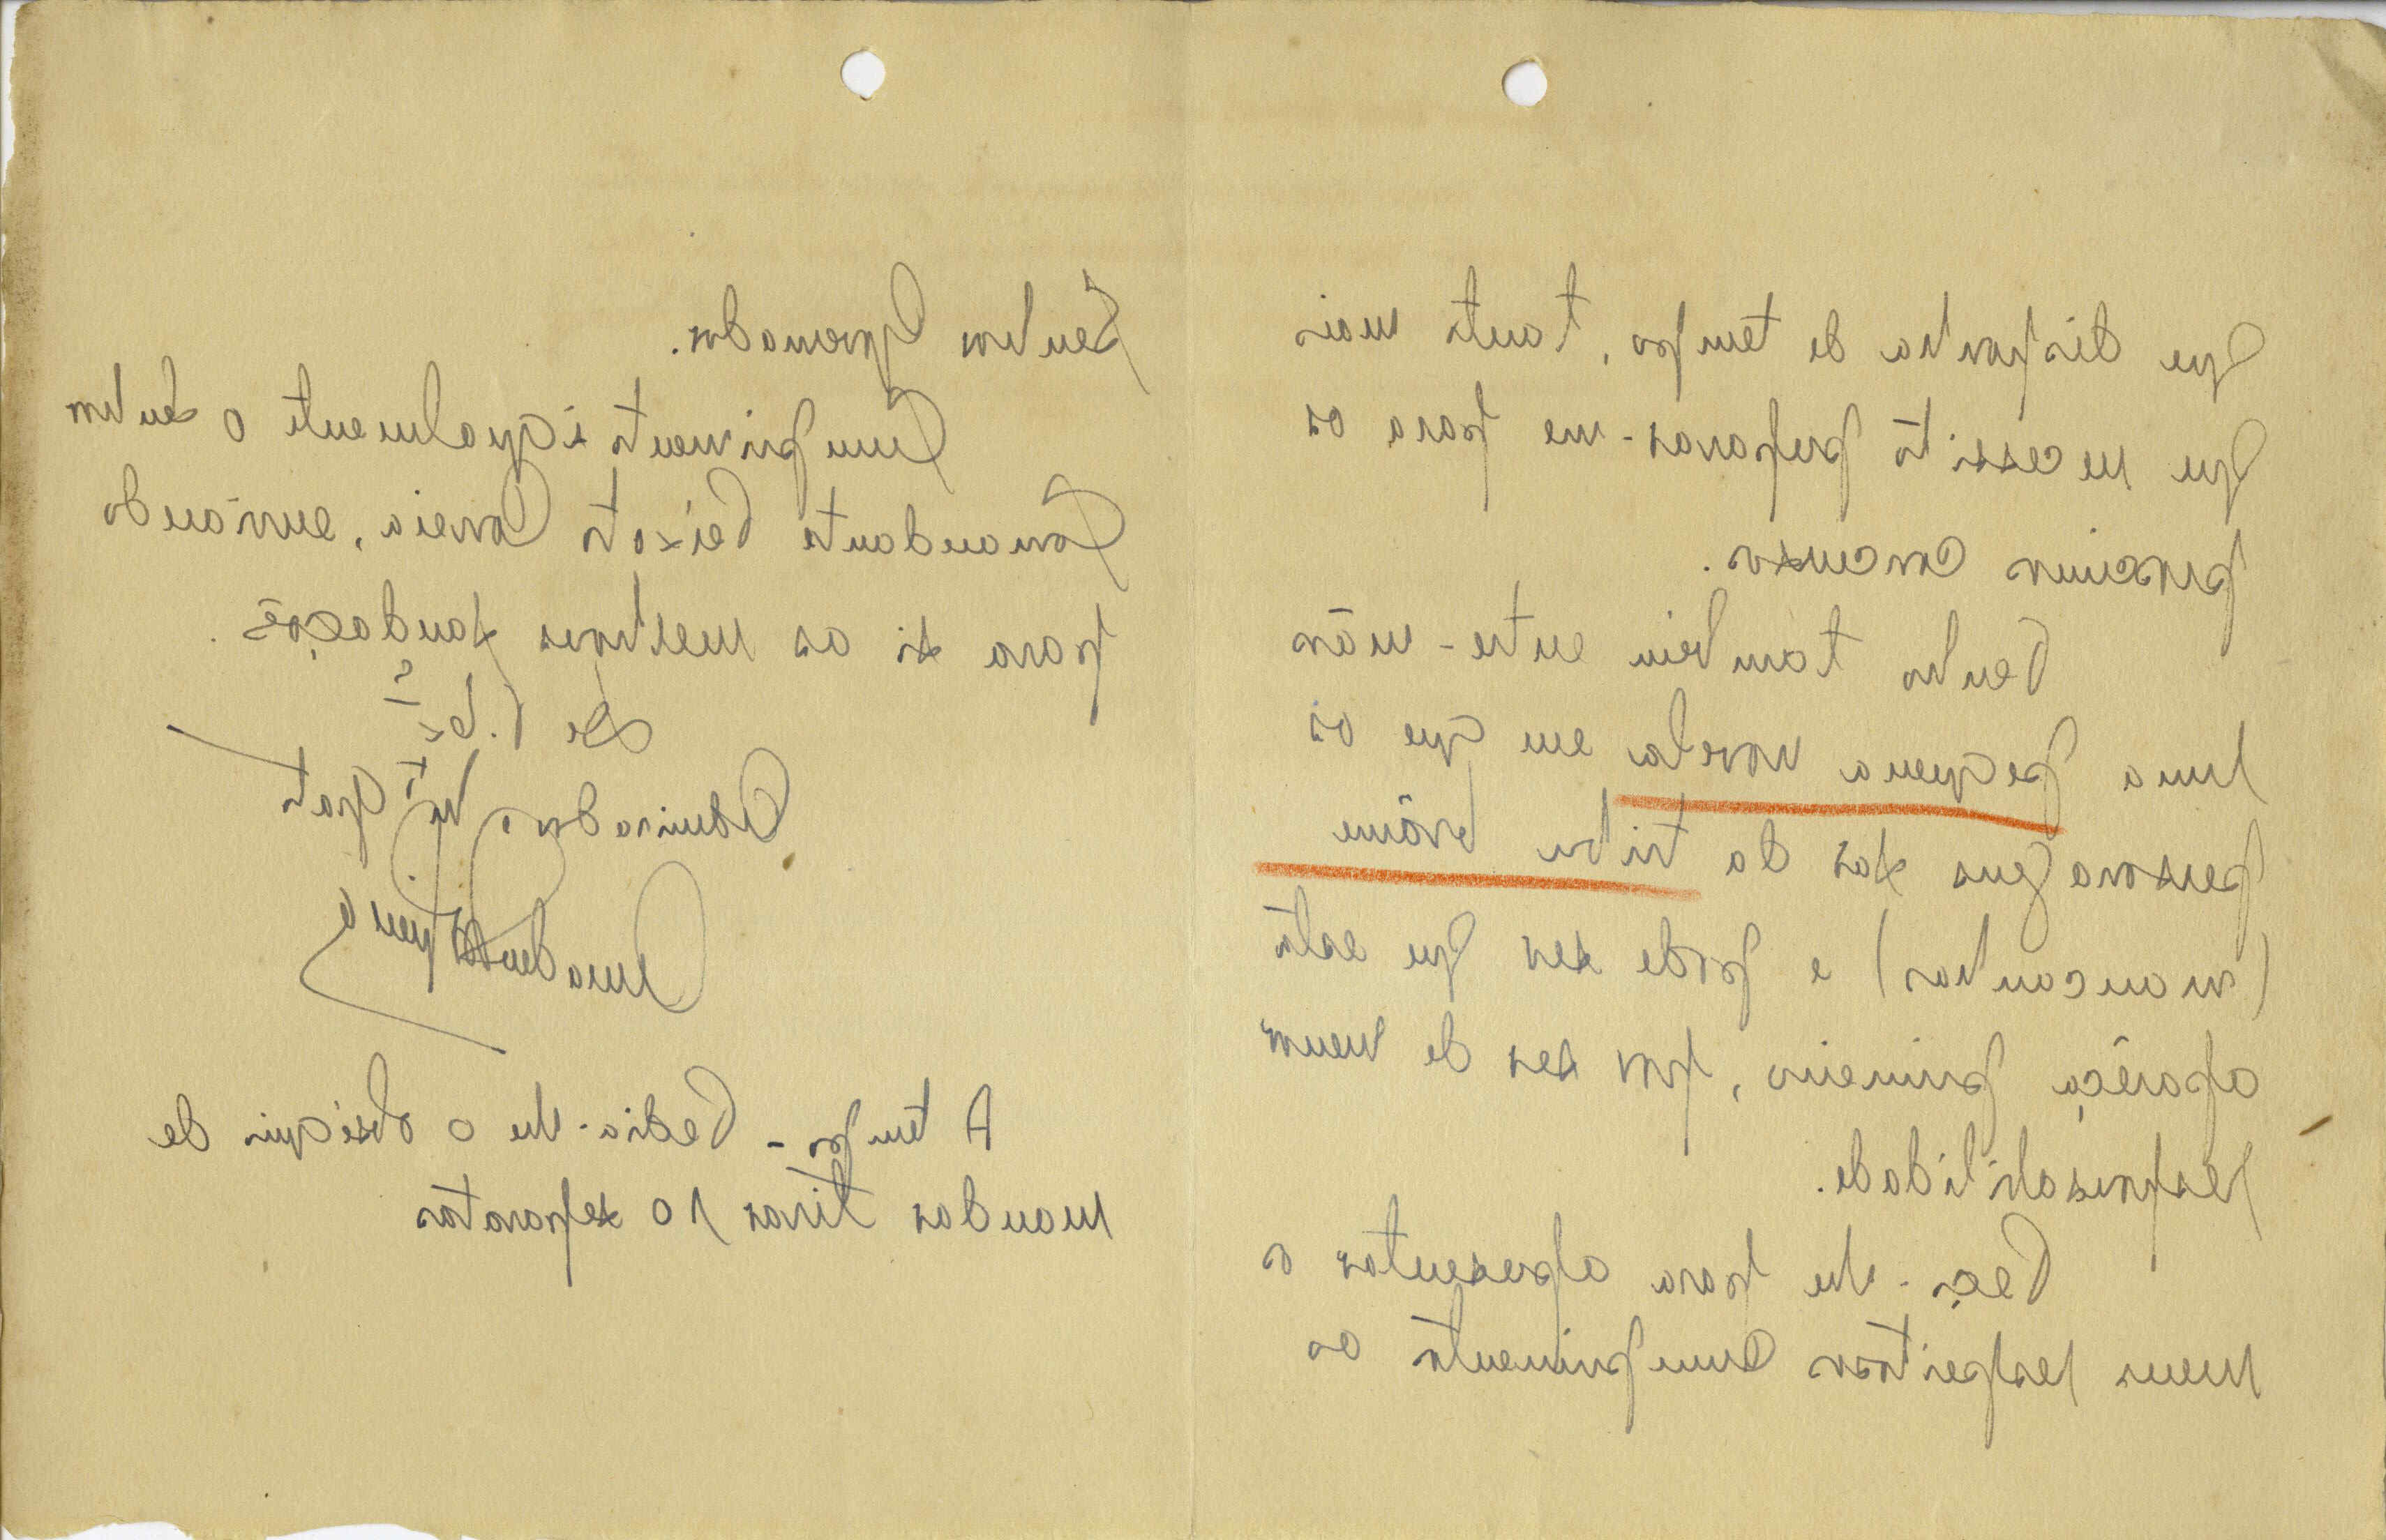 que disponha de tempo, tanto mais
que necessito preparar-me para os
proximos concursos.
Tenho tambem entre-mãos
uma pequena novela em que os
personagens são da tribu brâme
(mancanhas) e pode ser que esta
apareça primeiro, por ser de menor
responsabilidade.
Peço-lhe para apresentar os
meus respeitosos cumprimentos ao
Senhor Governador.
Cumprimento igualmente o Senhor
Comandante Peixoto Correia, enviando
para si as melhores saudações.
De V. Ex.ª
Admirador mto grato
Amadeu
A tempo - Pedia-lhe o obséquio de
mandar tirar 10 separatas